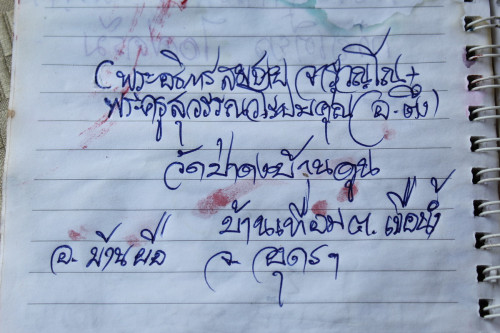 (พระอธิการสมชาย
พระครูสุวรรณ คุณ (อ.ตึ๋ง)
วัดป่าดงบ้านคูน
บ้านเทื่อม ต. เขือน้ำ
อ. บ้านผือ จ. อุดรฯ